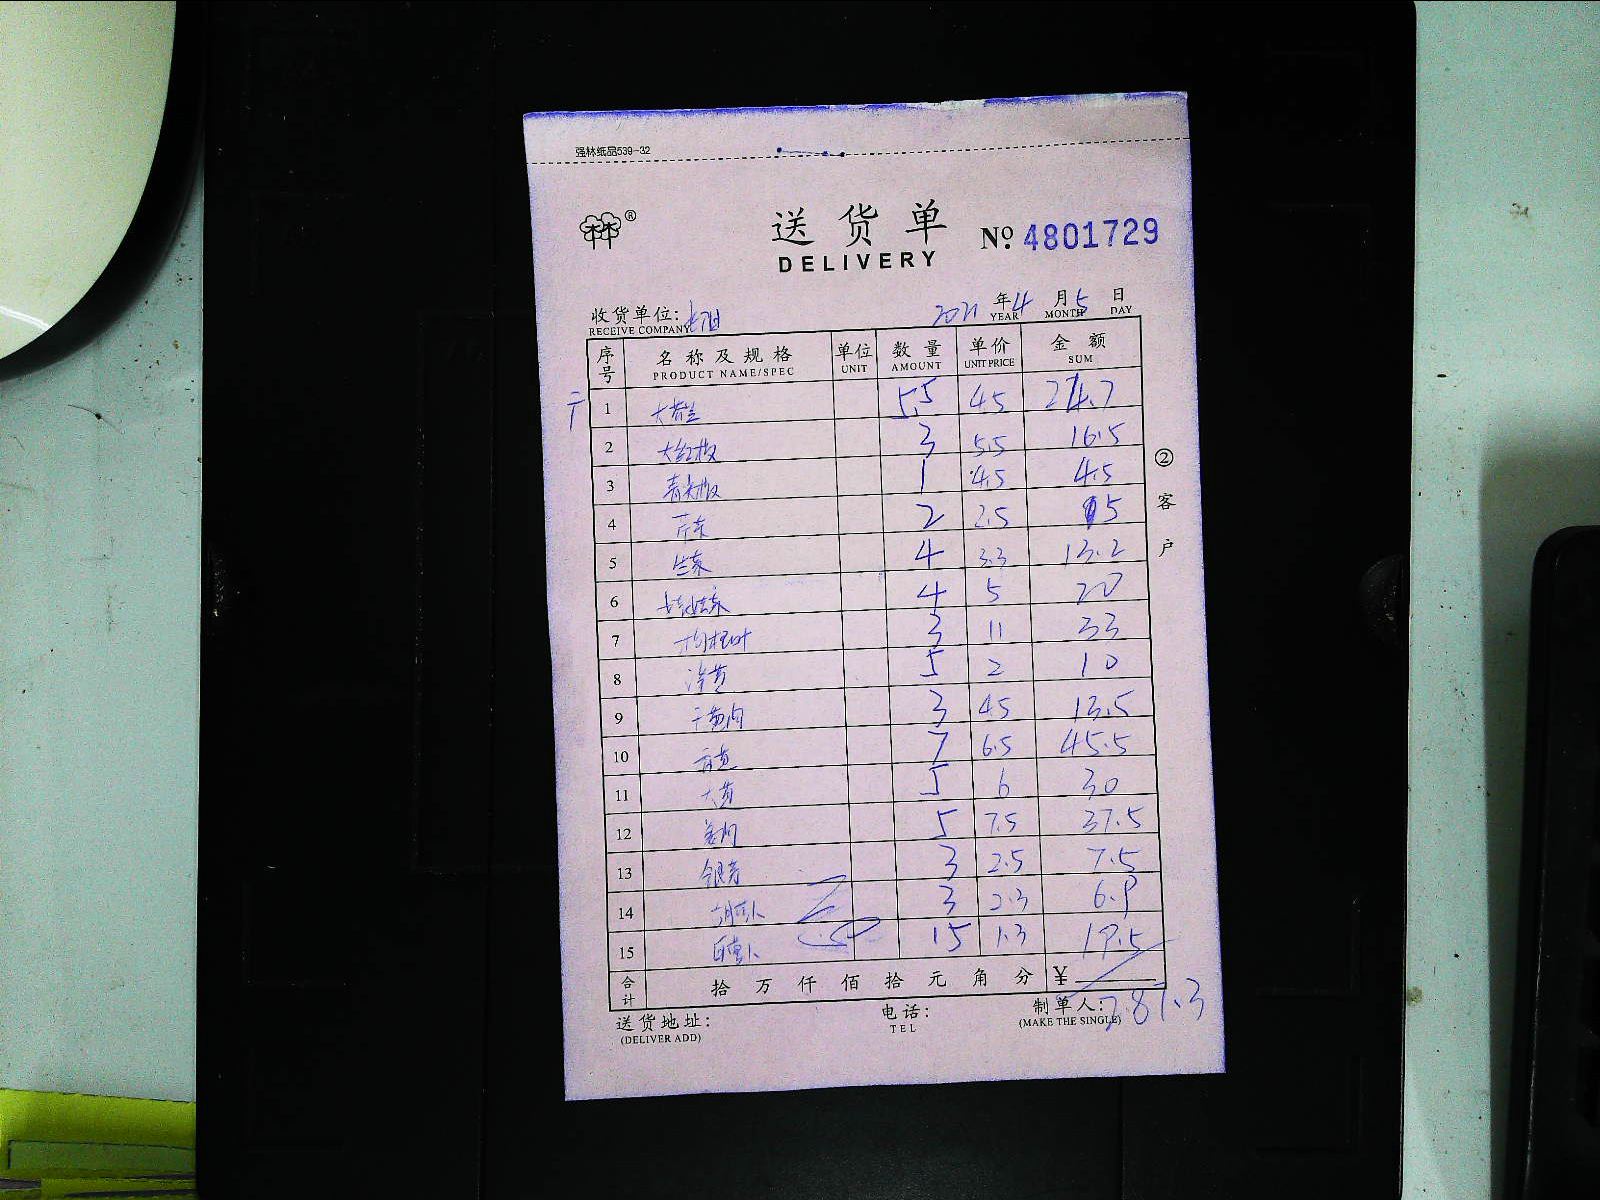 强林纸品539-32
林 ®
送货单
№ 4801729
DELIVERY
收货单位:
2021 年 4 月 5 日
RECEIVE COMPANY YEAR MONTH DAY
序号 名称及规格 单位 数量 单价 金额
PRODUCT NAME/SPEC UNIT AMOUNT UNIT PRICE SUM
1 5.5 45
2 大红椒 3 5.5 16.5
3 青尖椒 1 4.5 4.5
4 芹菜 2 2.5 5
5 生菜 4 3.3 13.2
6 4 5 20
7 枸杞叶 3 11 33
8 5 2 10
9 3 45 13.5
10 7 6.5 45.5
11 5 6 30
12 5 7.5 37.5
13 银芽 3 2.5 7.5
14 3 2.3 6.9
15 15 1.3 19.5
合计 拾 万 仟 佰 拾 元 角 分 ¥
287.3
送货地址: 电话: 制单人:
(DELIVER ADD) TEL (MAKE THE SINGLE)
②客户